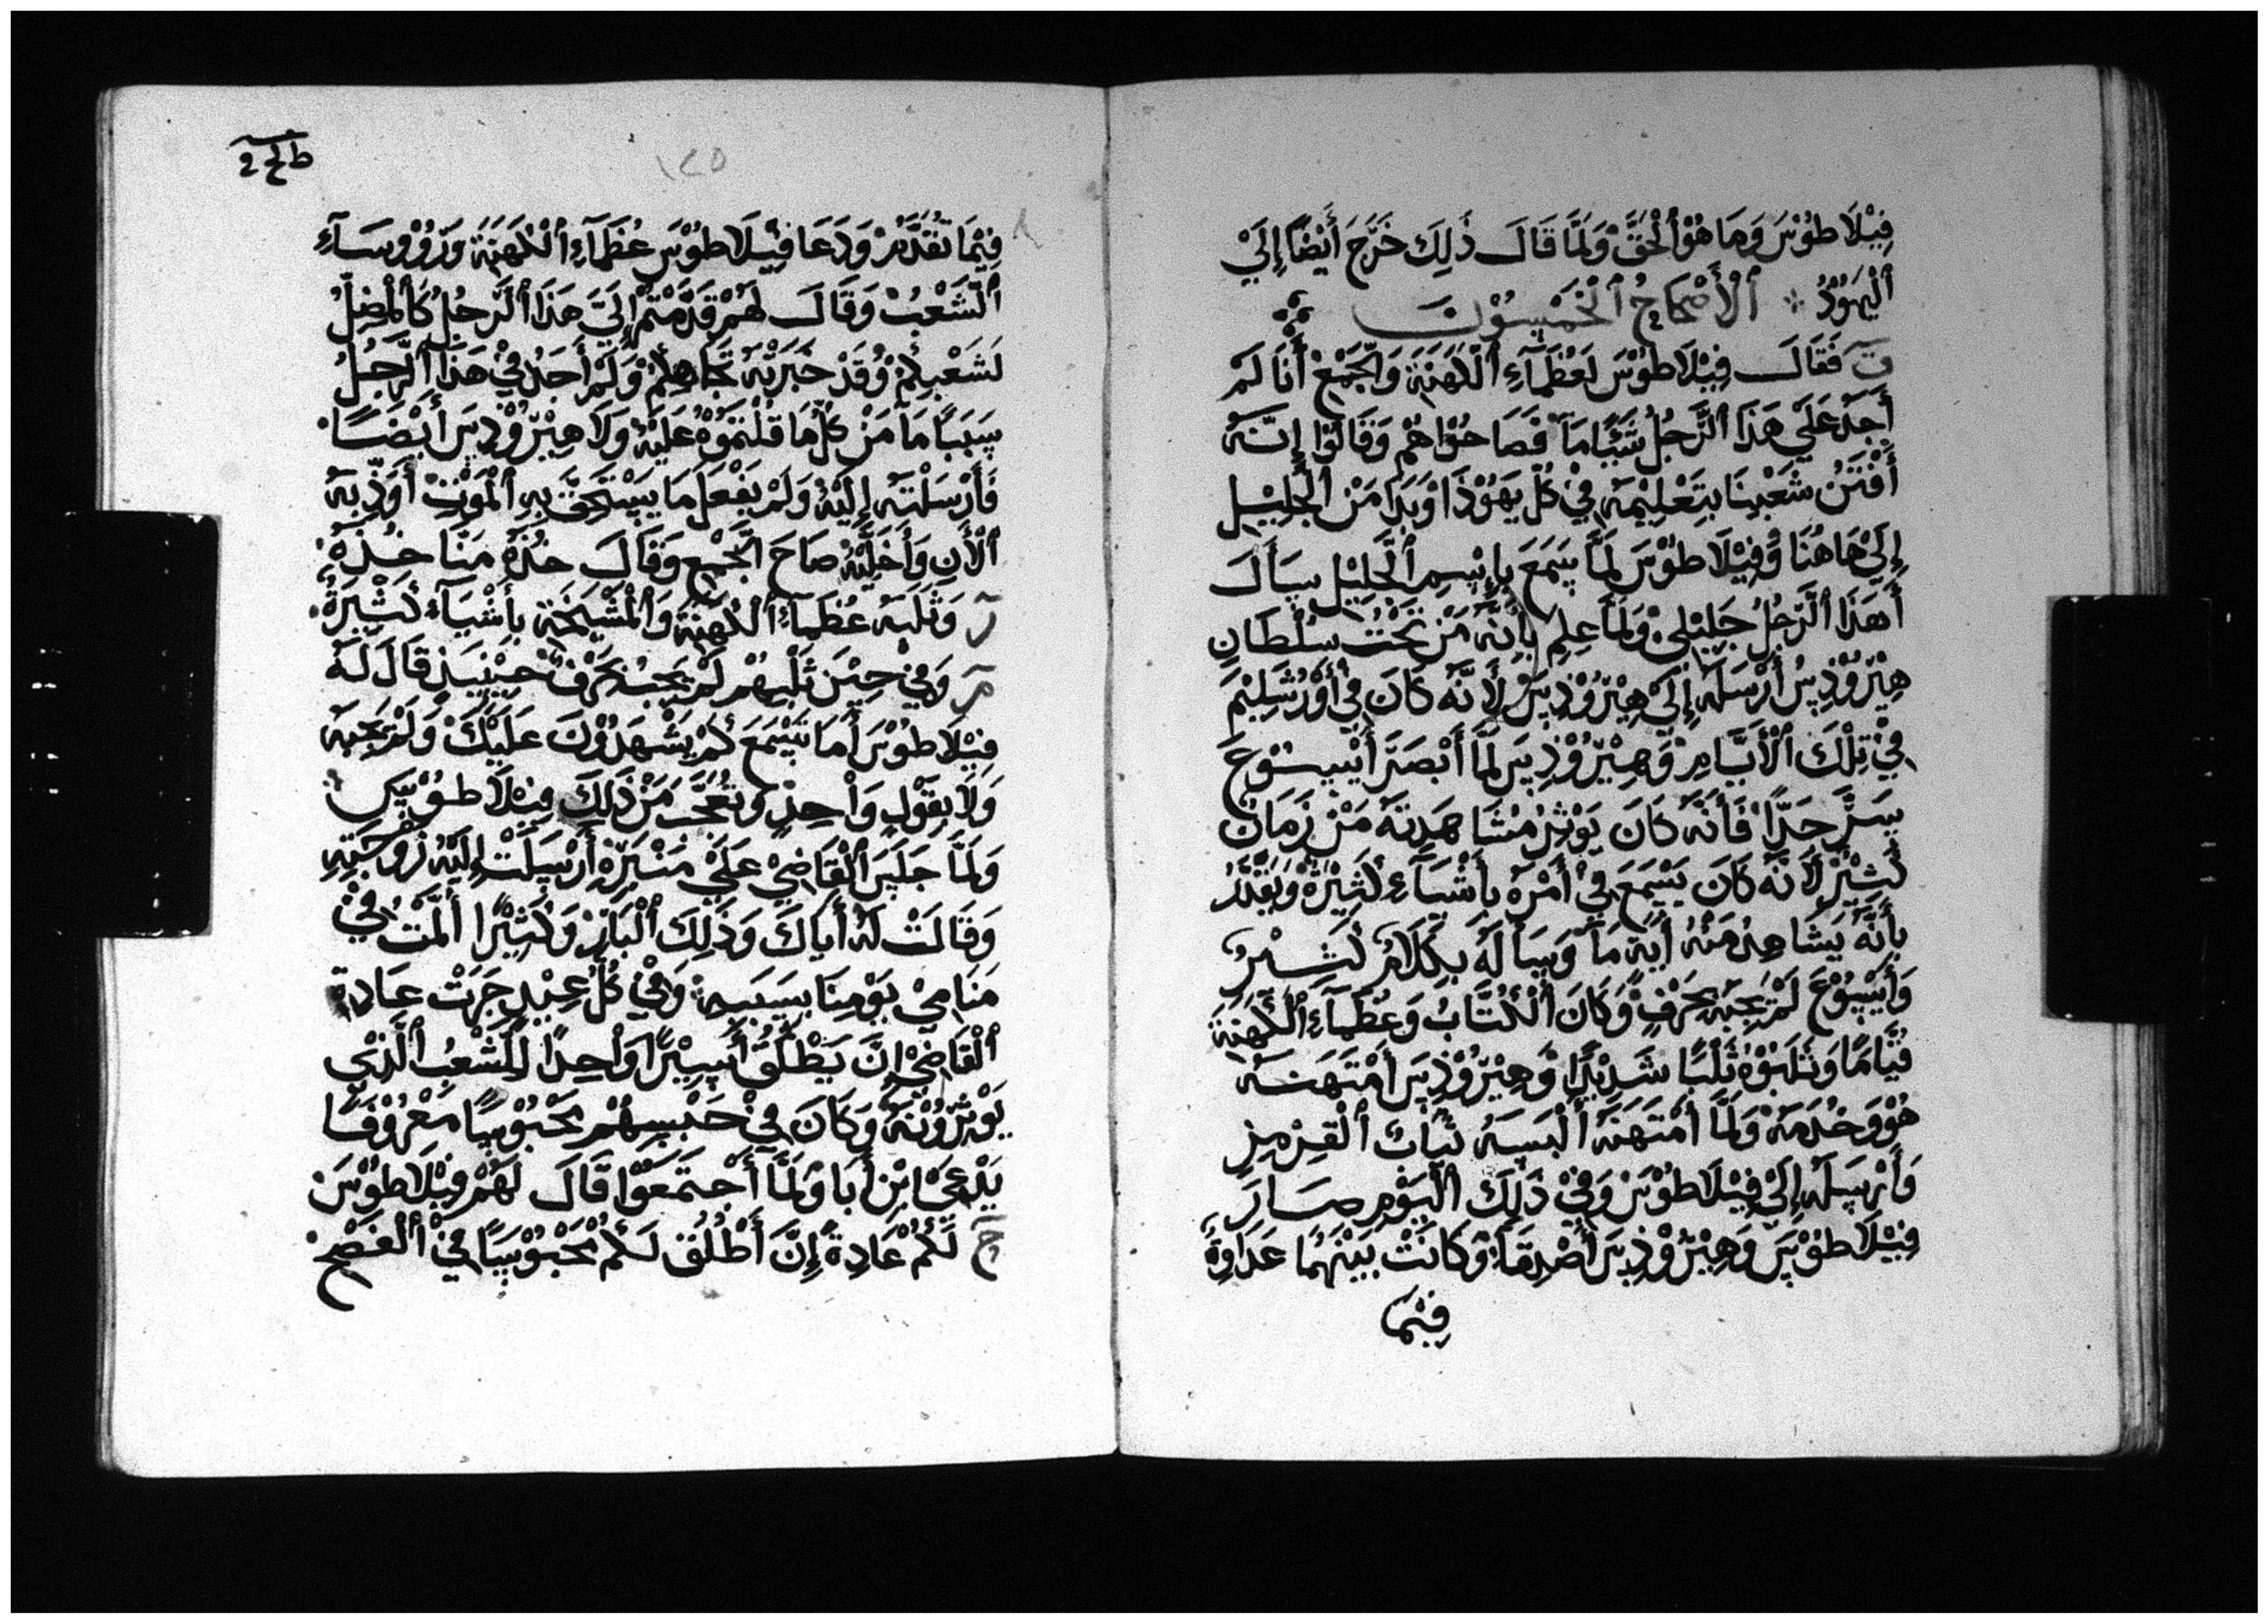 فِيْلَاطُوْسَ وَمَا هُوْ ٱلْحَقَّ وَلَمَّا قَالَ ذَلِكَ خَرَجَ أَيْضًا إِلَيْ
ٱلْيَهُوْدُ ٱلْأَصْحَاحُ ٱلْخَمْسُوْنَ
ت فَقَالَ فِيْلَاطُوْسَ لِعُظَمَآءِ ٱلْكَهَنَةِ وَٱلْجَمْعِ أَنَا لَمْ
أَجَدْ عَلَي هَذَا ٱلرَّجُلْ شَيْئًا مَا فَصَاحُوْا هُمْ وَقَالُوْا إِنَّهُ
أَفْتَنَ شَعْبَنَا بِتَعْلِيْمِهِ فِيْ كُلِّ يَهُوْذَا وَبَدَا مَنْ ٱلْجَلِيْلِ
إِلَيْ هَاهُنَا وَفِيْلَاطُوْسَ لَمَّا سَمَعَ بِإِسِمِ ٱلْجَلِيْلِ سَأَلَ
أَهَذَا ٱلرَّجُلُ جَلِيْلِيْ وَلَمَّا عِلِمِ بِأَنَّهُ مَنْ تَحْتُ سُلْطَانِ
هِيْرُوْذِسُ أَرْسَلَهُ إِلَيْ هِيْرُوْذِسَ لِأَنَّهُ كَانَ فِيْ أُوْرُشَلِيْمَ
فِيْ تِلْكَ ٱلْأَيَّامِ وَهِيْرُوْذِسَ لَمَّا أَبْصَرَ أَيْسُوْعَ
سَرَّ جَدًّا فَأَنَّهُ كَانَ يَوْثِرُ مُشَاهَدَتَهُ مَنْ زَمَانٍ
كَثِيْرٍ لَأَنَّهُ كَانَ يَسْمَعَ فِيْ أَمْرَهُ بِأَشْيَآءِ كَثِيْرَةْ وَيَقْدَرُ
بِأَنَّهُ يَشَاهِدُ مَنْهُ أَيَةً مَا وَسَأَلَهُ بِكَلَامٍ كَثِيْرٍ
وَأَيْسُوْعَ لَمْ يَجِبَهُ بِحَرْفٍ وَكَانَ ٱلْكُتَّابُ وَعُظَمَآءِ ٱلْكَهَنَةِ
قُيَّامًا وَثَلَبُوْهُ ثَلْبًا شَدِيْدًا وَهِيْرُوْذِسَ أَمْتَهَنَهُ
هُوْ وَخُدَمَهُ وَلَمَّا أَمْتَهَنَهُ أَلْبَسَهُ ثَيَابَ ٱلْقِرْمِزِ
وَأَرْسَلَهُ إِلَيْ فِيْلَاطُوْسَ وَفِيْ ذَلِكَ ٱلْيَوْمِ صَارَ
فِيْلَاطُوْسَ وَهِيْرُوْذِسَ أَصْدِقَآءَ وَكَانَتْ بَيْنَهُمَا عَدَاوَةً
فِيْمَا
فِيْمَا تَقَدَّمْ وَدَعَا فِيْلَاطُوْسَ عُظَمَآءِ ٱلْكَهَنَةِ وَرُؤُوْسَآءِ
ٱلشَّعْبُ وَقَالَ لَهُمْ قَدَّمْتُمْ إِلَيَّ هَذَا ٱلرَّجُلُ كَٱلْمُضِلُّ
لَشَعْبِكُمْ وَقَدْ خَبَرْتُهُ تَجَاهِكُمْ وَلَمْ أَجَدْ فِيْ هَذَا ٱلرَّجُلُ
سَبَبًا مَا مَنْ كُلِّ مَا قُلْتَمُوْهُ عَلَيْهِ وَلَا هِيْرُوْذِسَ أَيْضًا
فَأَرْسَلْتَهُ إِلَيْهُ وَلَمْ يَفْعَلَ مَا يَسْتَحَقَّ بِهِ ٱلْمَوْتِ أَوَدِّبَهُ
ٱلْأَنِ وَأَخَلِّيْهُ صَاحَ ٱلْجَمْعِ وَقَالَ خُذَهُ مَنَّا خُذَهُ
وَثَلَبَهُ عُظَمَآءُ ٱلْكَهَنَةِ وَٱلْمَشْيَخَةِ بِأَشْيَآءَ كَثِيْرَةً
وَفِيْ حِيْنَ ثَلْبِهُمْ لَمْ يَجَبْ بِحَرْفٍ حِيْنَيَذٍ قَالَ لَهُ
فِيْلَاطُوْسَ أَمَا تَسْمَعَ كَمْ يَشْهَدُوْنَ عَلَيْكَ وَلَمْ يَجَبَهُ
وَلَا بِقَوْلٍ وَاْحِدٍ وَتَعَجَّبَ مَنْ ذَلِكَ فِيْلَاطُوْسَ
وَلَمَّا جَلَسَ ٱلْقَاضِيْ عَلَيْ مَنْبَرَهُ أَرْسَلَتْ إِلَيْهُ زَوْجَتِهِ
وَقَالَتْ لَهُ أَيَاكَ وَذَلِكَ ٱلْبَارَ وَكَثِيْرًا أَلَمْتُ فِيْ
مَنَامِيْ يَوْمِنَا بِسَبَبِهِ وَفِيْ كُلِّ عِيْدٍ جَرَتْ عَادِةُ
ٱلْقَاضِيْ إِنَّ يَطْلَقُ أَسِيْرًا وَاْحِدًا لَلشَّعْبُ ٱلَّذِيْ
يَوْثِرُوْنَهُ وَكَانَ فِيْ حَبْسِهُمْ مَحْبُوْسًا مَعْرُوْفًا
يَدْعَيْ ابْنِ أَبَا وَلَمَّا أَجْتَمَعَوْا قَالَ لَهُمْ فِيْلَاطُوْسَ
لَكُمْ عَادِةً إِنَّ أَطْلُقَ لَكُمْ مَحْبُوْسًا فِيْ ٱلْفَصْحِ